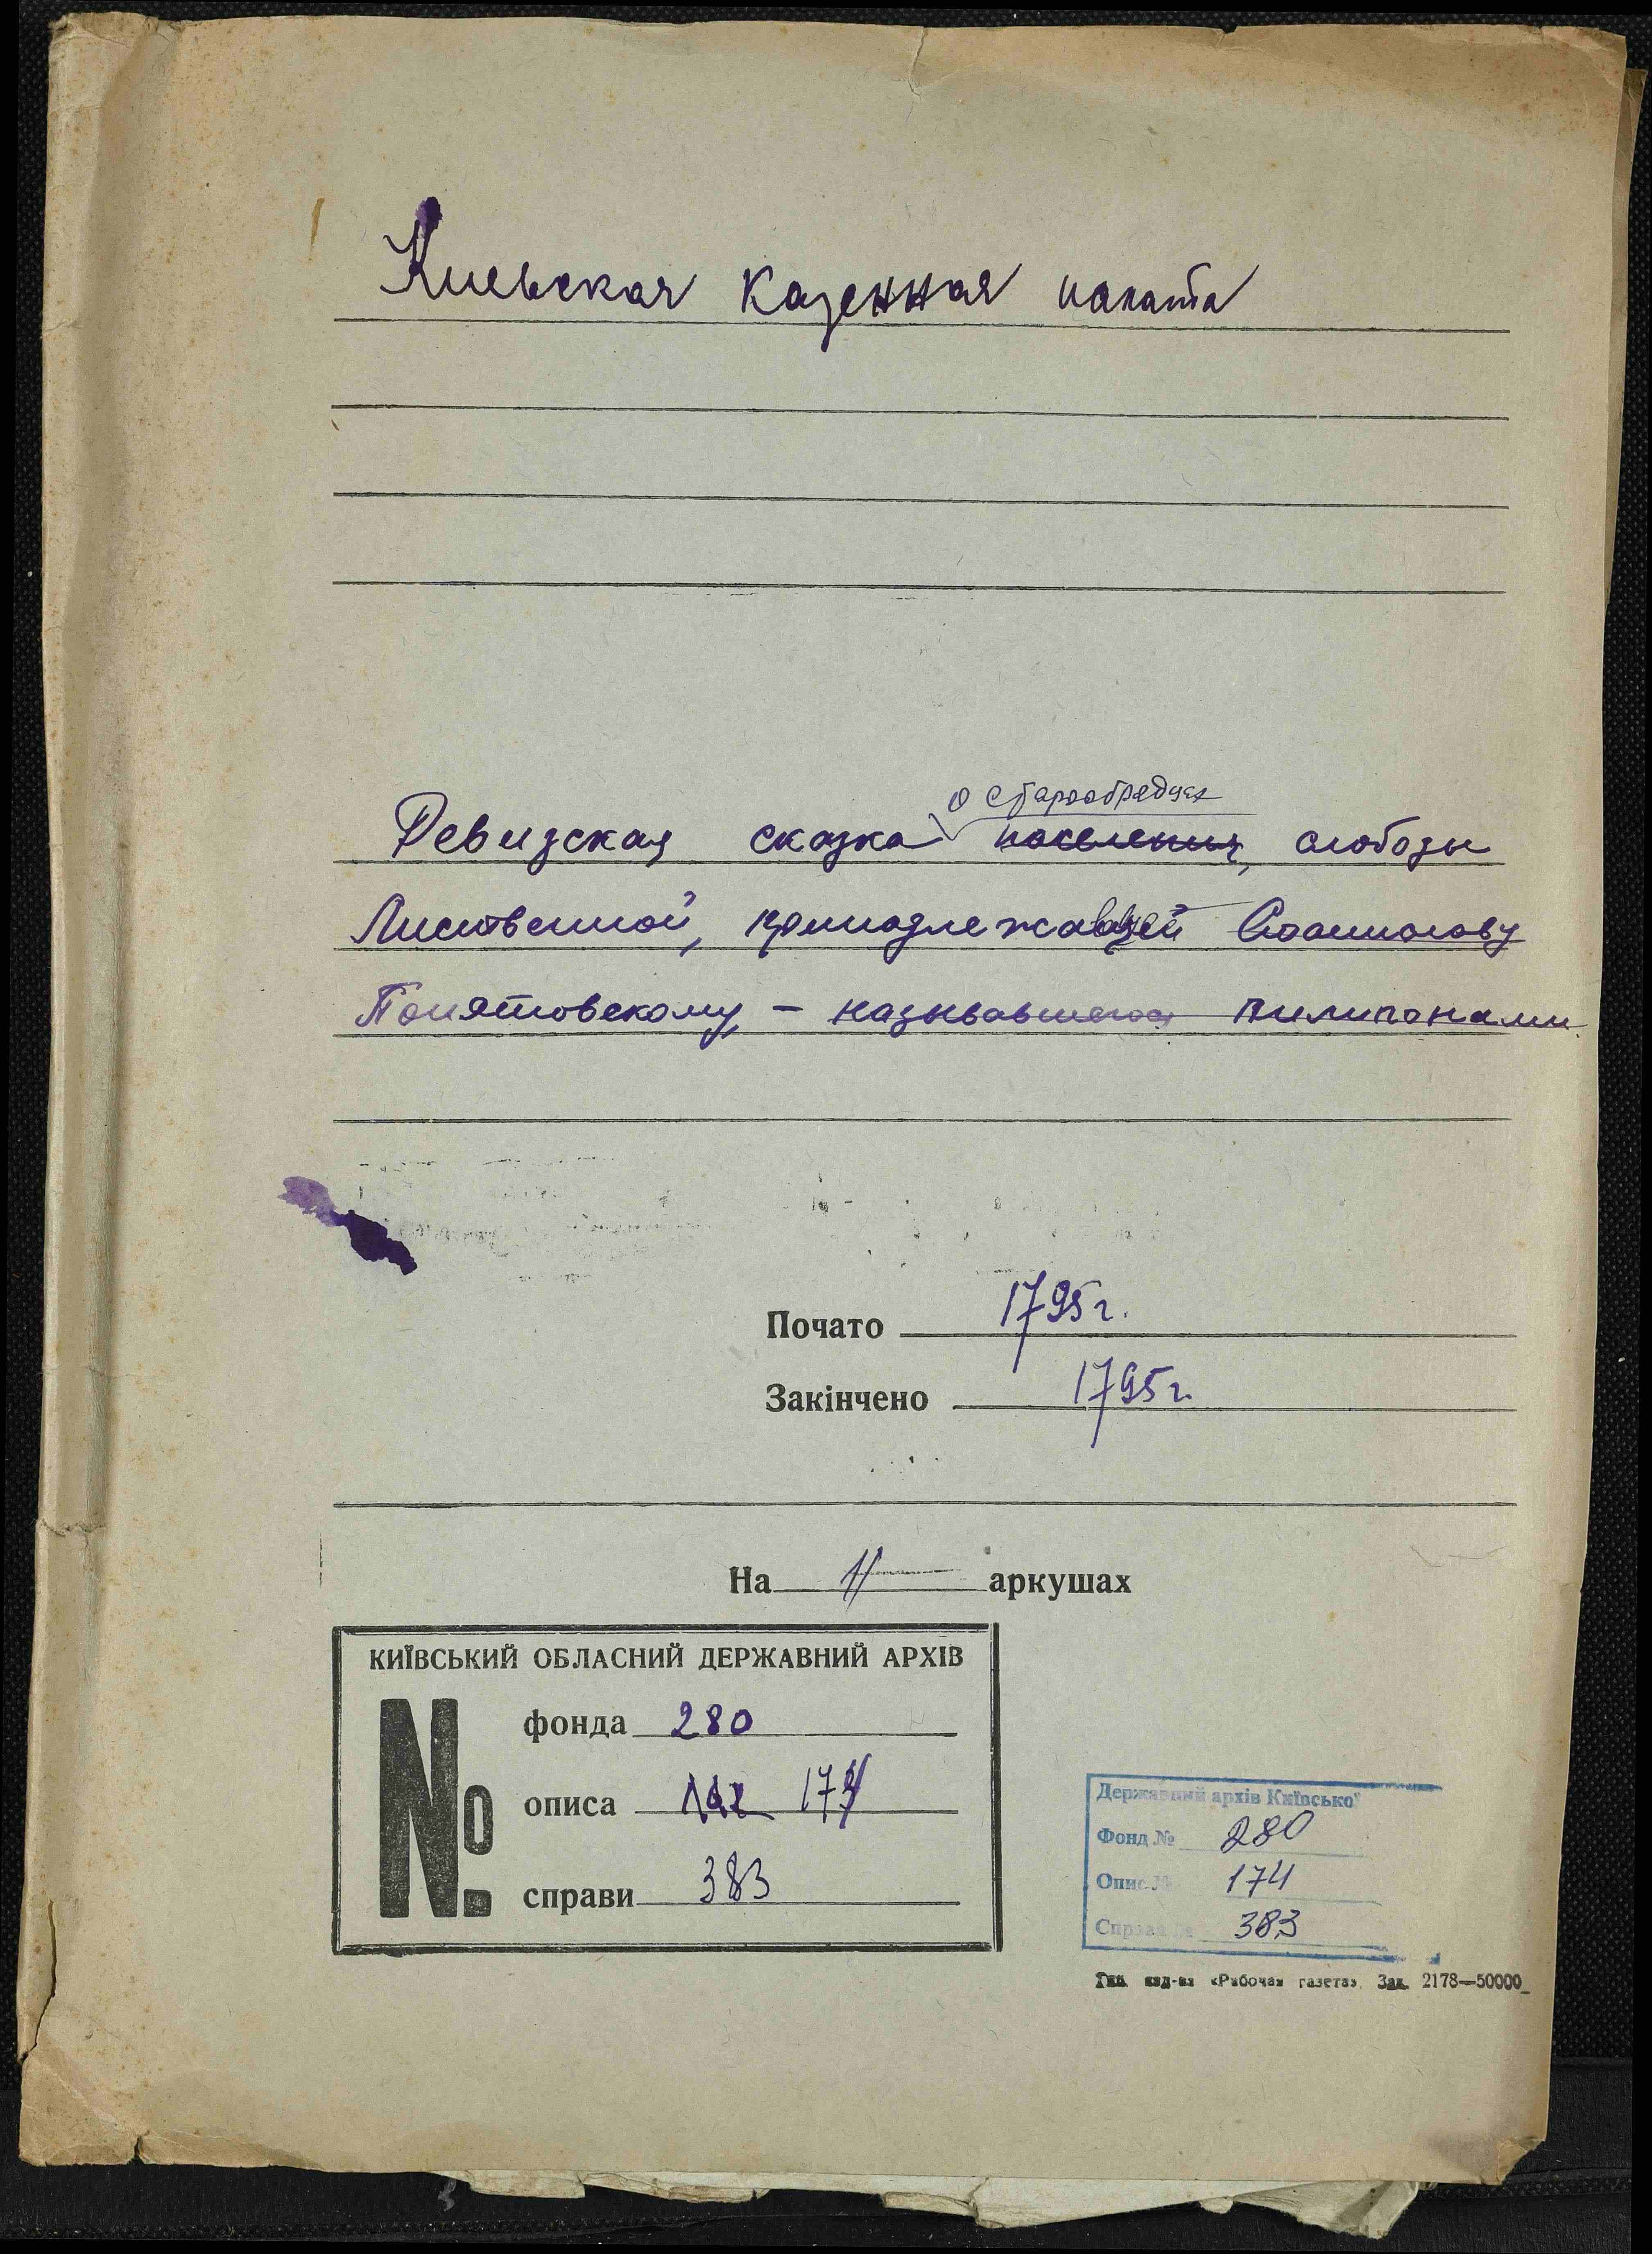 Киевская казенная палата
о старообрядцах
Ревизская сказка поселения, слободы
Лиственной, принадлежавшей Станиславу
Понятовскому, – называвшегося пилипонами
Почато 1795 г.
Закінчено 1795 г.
На 11 аркушах
КИЇВСЬКИЙ ОБЛАСНИЙ ДЕРЖАВНИЙ АРХІВ
№
фонда 280
описа 174
справи 383
Державний архів Київської
Фонд № 280
Опис № 174
Справа № 383
Тип. изд-ва «Рабочая газета». Зак. 2178—50000